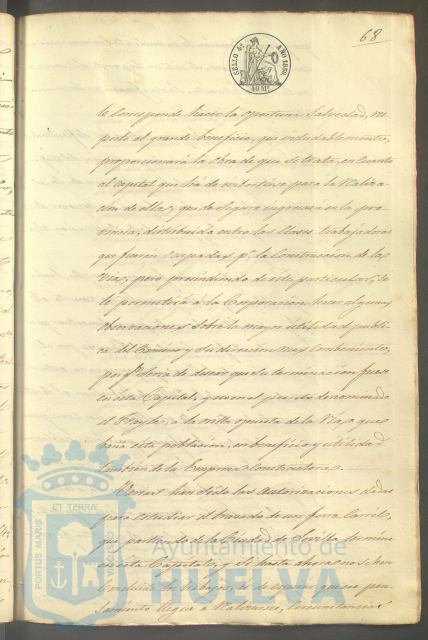 68
SELLO 4º AÑO 1858.
40 Mrs
le corresponde hacer la oportuna Salvedad, res-
pecto al grande beneficio, que indudablemente,
proporcionará la Obra de que se trata, en cuanto
al Capital que há de invertirse para la Realiza-
cion de ellas, que de Seguro ingresará en la pro-
vincia, distribuida entre las Clases trabajadoras
que fueren ocupadas pª la Construccion de las
Vias; pero prescindiendo de este particular, se
le permitirá á la Corporacion hacer algunas
Observaciones Sobre la mayor utilidad publi-
ca del Camino y Su direccion mas conveniente,
por qe Seria de desear que la terminacion fuese
en esta Capital, y sea en el punto denominado
el Frayle, á la orilla opuesta de la Ria que
baña esta poblacion, en beneficio y utilidad
tambien de la Empresa Constructora.
Varias han sido las autorizaciones dadas
para estudiar el trazado de un ferro Carril,
que partiendo de la Ciudad de Sevilla termine
en esta Capital, y Si hasta ahora no se han
Concluido los trabajos, es de esperar que ese pen-
samiento llegue á Realizarse, Circunstancia
PORTUS MARIS ET TERRÆ
Ayuntamiento de
HUELVA